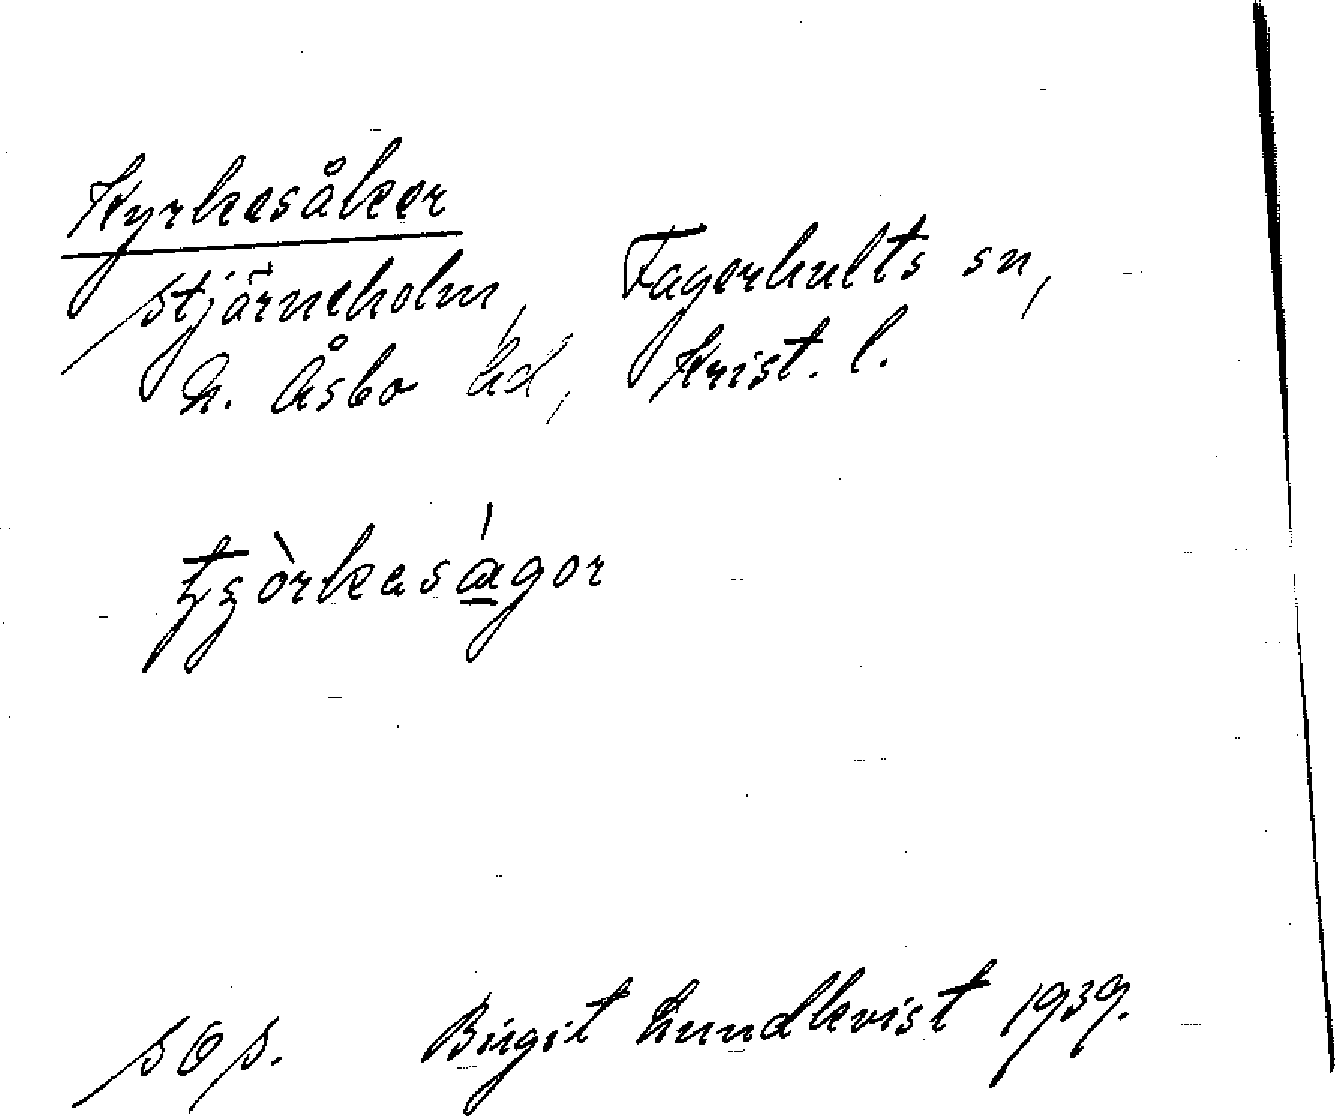 Kyrkesåker
Stjärneholm, Fagerhults sn,
N. Åsbo hd, Krist. l.
tʒòrkaságor
SOS. Birgit Lundkvist 1939.